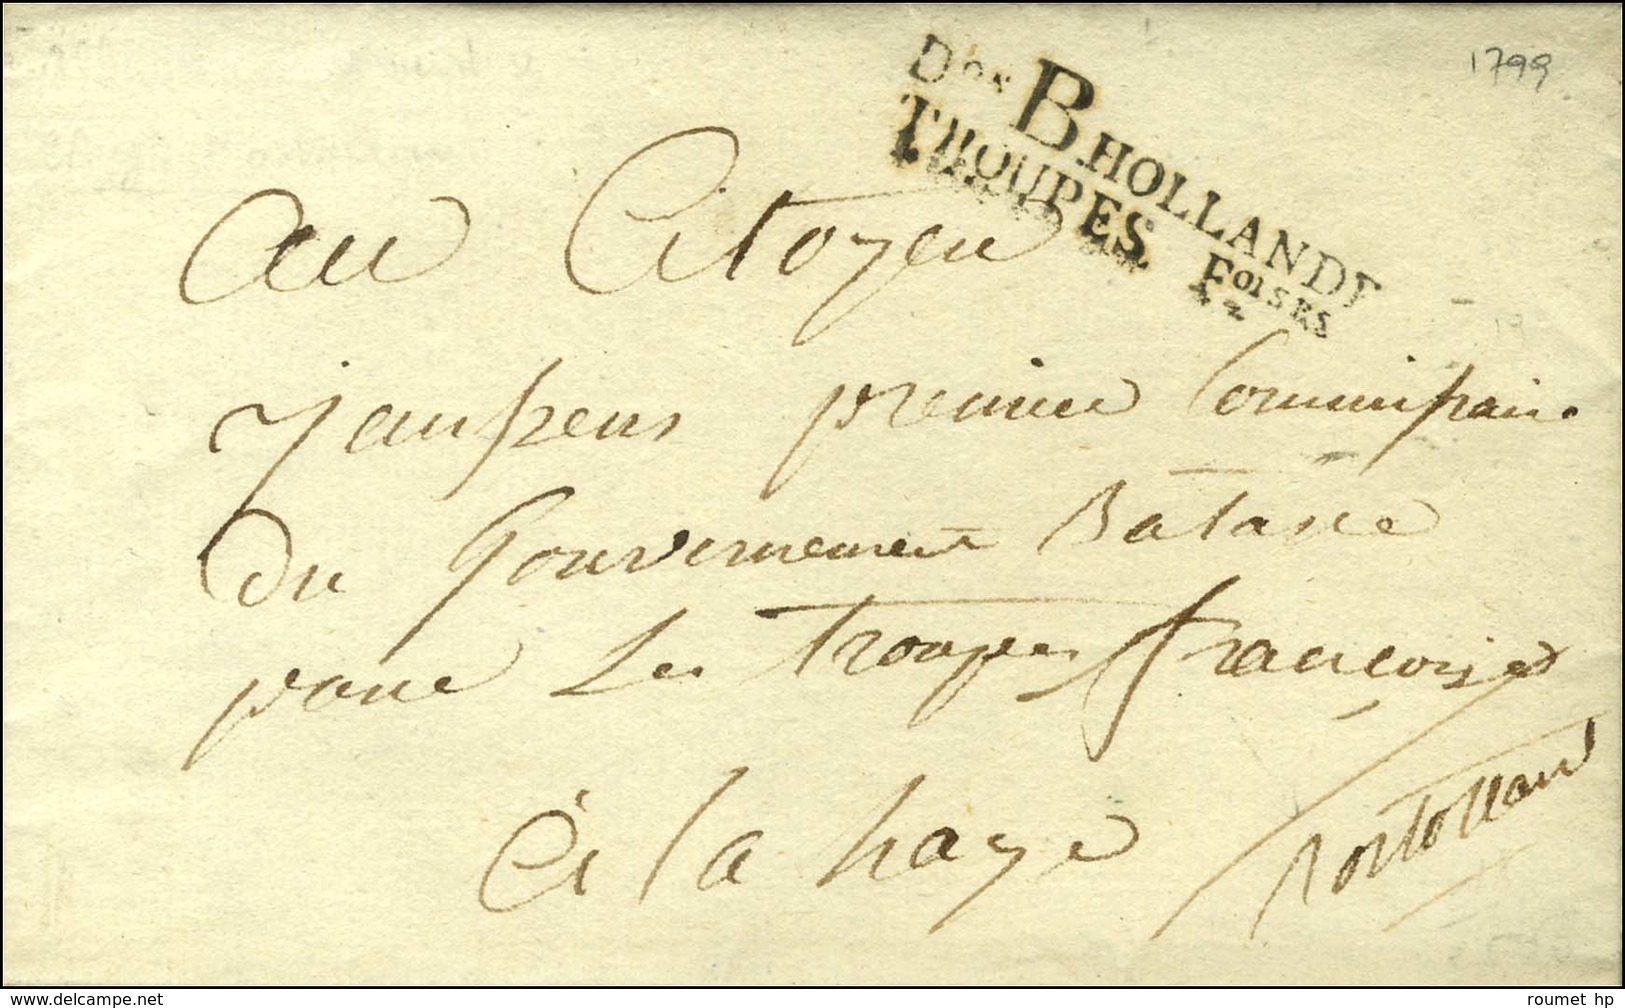 1799
Don B HOLLANDE
TROUPES Foises
au Citoyen
Janssens premier Commissaire
du Gouvernement Batave
pour Les troupes françoises
à la haye
delcampe.net
roumet hp